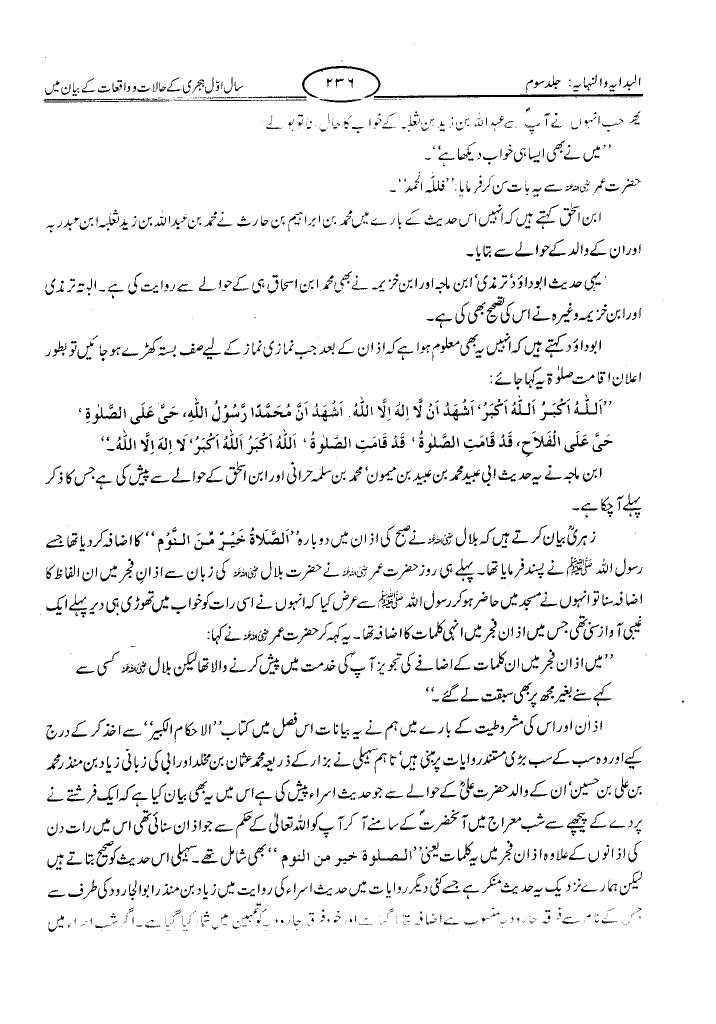 البدایہ والنہایہ: جلد سوم
۲۳۶
سال اوّل ہجری کے حالات و واقعات کے بیان میں
پھر جب انہوں نے آپؐ سے عبداللہ بن زید بن ثعلبہ کے خواب کا حال سنا تو بولے
’’میں نے بھی ایسا ہی خواب دیکھا ہے‘‘۔
حضرت عمر رضی اللہ عنہ سے یہ بات سن کر فرمایا: ’’فللّٰہ الحمد‘‘۔
ابن اسحٰق کہتے ہیں کہ انہیں اس حدیث کے بارے میں محمد بن ابراہیم بن حارث نے محمد بن عبداللہ بن زید ثعلبہ ابن عبدربہ
اور ان کے والد کے حوالے سے بتایا۔
یہی حدیث ابوداؤد‘ ترمذی‘ ابن ماجہ اور ابن خزیمہ نے بھی محمد ابن اسحاق ہی کے حوالے سے روایت کی ہے۔ البتہ ترمذی
اور ابن خزیمہ وغیرہ نے اس کی تصحیح بھی کی ہے۔
ابوداؤد کہتے ہیں کہ انہیں یہ بھی معلوم ہوا ہے کہ اذان کے بعد جب نمازی نماز کے لیے صف بستہ کھڑے ہو جائیں تو بطور
اعلان اقامت صلوٰۃ یہ کہا جائے:
’’اَللّٰہُ اَکْبَرُ اَللّٰہُ اَکْبَرُ‘ اَشْھَدُ اَنْ لَّا اِلٰہَ اِلَّا اللّٰہُ. اَشْھَدُ اَنَّ مُحَمَّدًا رَّسُوْلُ اللّٰہِ، حَیَّ عَلَی الصَّلٰوۃِ ‘
حَیَّ عَلَی الْفَلَاحِ، قَدْ قَامَتِ الصَّلٰوۃُ ‘ قَدْ قَامَتِ الصَّلٰوۃُ ‘ اَللّٰہُ اَکْبَرُ اَللّٰہُ اَکْبَرُ‘ لَا اِلٰہَ اِلَّا اللّٰہُ۔‘‘
ابن ماجہ نے یہ حدیث ابی عبید محمد بن عبید بن میمون‘ محمد بن سلمہ حرانی اور ابن اسحٰق کے حوالے سے پیش کی ہے جس کا ذکر
پہلے آ چکا ہے۔
زہریؒ بیان کرتے ہیں کہ بلال رضی اللہ عنہ نے صبح کی اذان میں دوبارہ ’’اَلصَّلَاۃُ خَیْرٌ مِّنَ النَّوْمِ‘‘ کا اضافہ کر دیا تھا جسے
رسول اللہ ﷺ نے پسند فرمایا تھا۔ پہلے ہی روز حضرت عمر رضی اللہ عنہ نے حضرت بلال رضی اللہ عنہ کی زبان سے اذانِ فجر میں ان الفاظ کا
اضافہ سنا تو انہوں نے مسجد میں حاضر ہو کر رسول اللہ ﷺ سے عرض کیا کہ انہوں نے اسی رات کو خواب میں تھوڑی ہی دیر پہلے ایک
غیبی آواز سنی تھی جس میں اذان فجر میں انہی کلمات کا اضافہ تھا۔ یہ کہہ کر حضرت عمر رضی اللہ عنہ نے کہا:
’’میں اذان فجر میں ان کلمات کے اضافے کی تجویز آپؐ کی خدمت میں پیش کرنے والا تھا لیکن بلال رضی اللہ عنہ کسی سے
کہے سنے بغیر مجھ پر بھی سبقت لے گئے۔‘‘
اذان اور اس کی مشروطیت کے بارے میں ہم نے یہ بیانات اس فصل میں کتاب ’’الاحکام الکبیر‘‘ سے اخذ کر کے درج
کیے اور وہ سب کے سب بڑی مستند روایات پر مبنی ہیں‘ تاہم سہیلی نے بزار کے ذریعہ محمد عثمان بن مخلد اور ابی کی زبانی زیاد بن منذر محمد
بن علی بن حسین‘ ان کے والد حضرت علیؓ کے حوالے سے جو حدیث اسراء پیش کی ہے اس میں یہ بھی بیان کیا ہے کہ ایک فرشتے نے
پردے کے پیچھے سے شب معراج میں آنحضرتؐ کے سامنے آ کر آپ کو اللہ تعالیٰ کے حکم سے جو اذان سنائی تھی اس میں رات دن
کی اذانوں کے علاوہ اذان فجر میں یہ کلمات یعنی ’’الصلوۃ خیر من النوم‘‘ بھی شامل تھے۔ سہیلی اس حدیث کو صحیح بتاتے ہیں
لیکن ہمارے نزدیک یہ حدیث منکر ہے جسے کئی دیگر روایات میں حدیث اسراء کی روایت میں زیاد بن منذر ابوالجارود کی طرف سے
جس کے نام سے فرقہ جارودیہ منسوب ہے اضافہ بتایا گیا ہے اور خود فرقہ جارودیہ کو میں شمار کیا گیا ہے۔ اگر شب اسراء میں